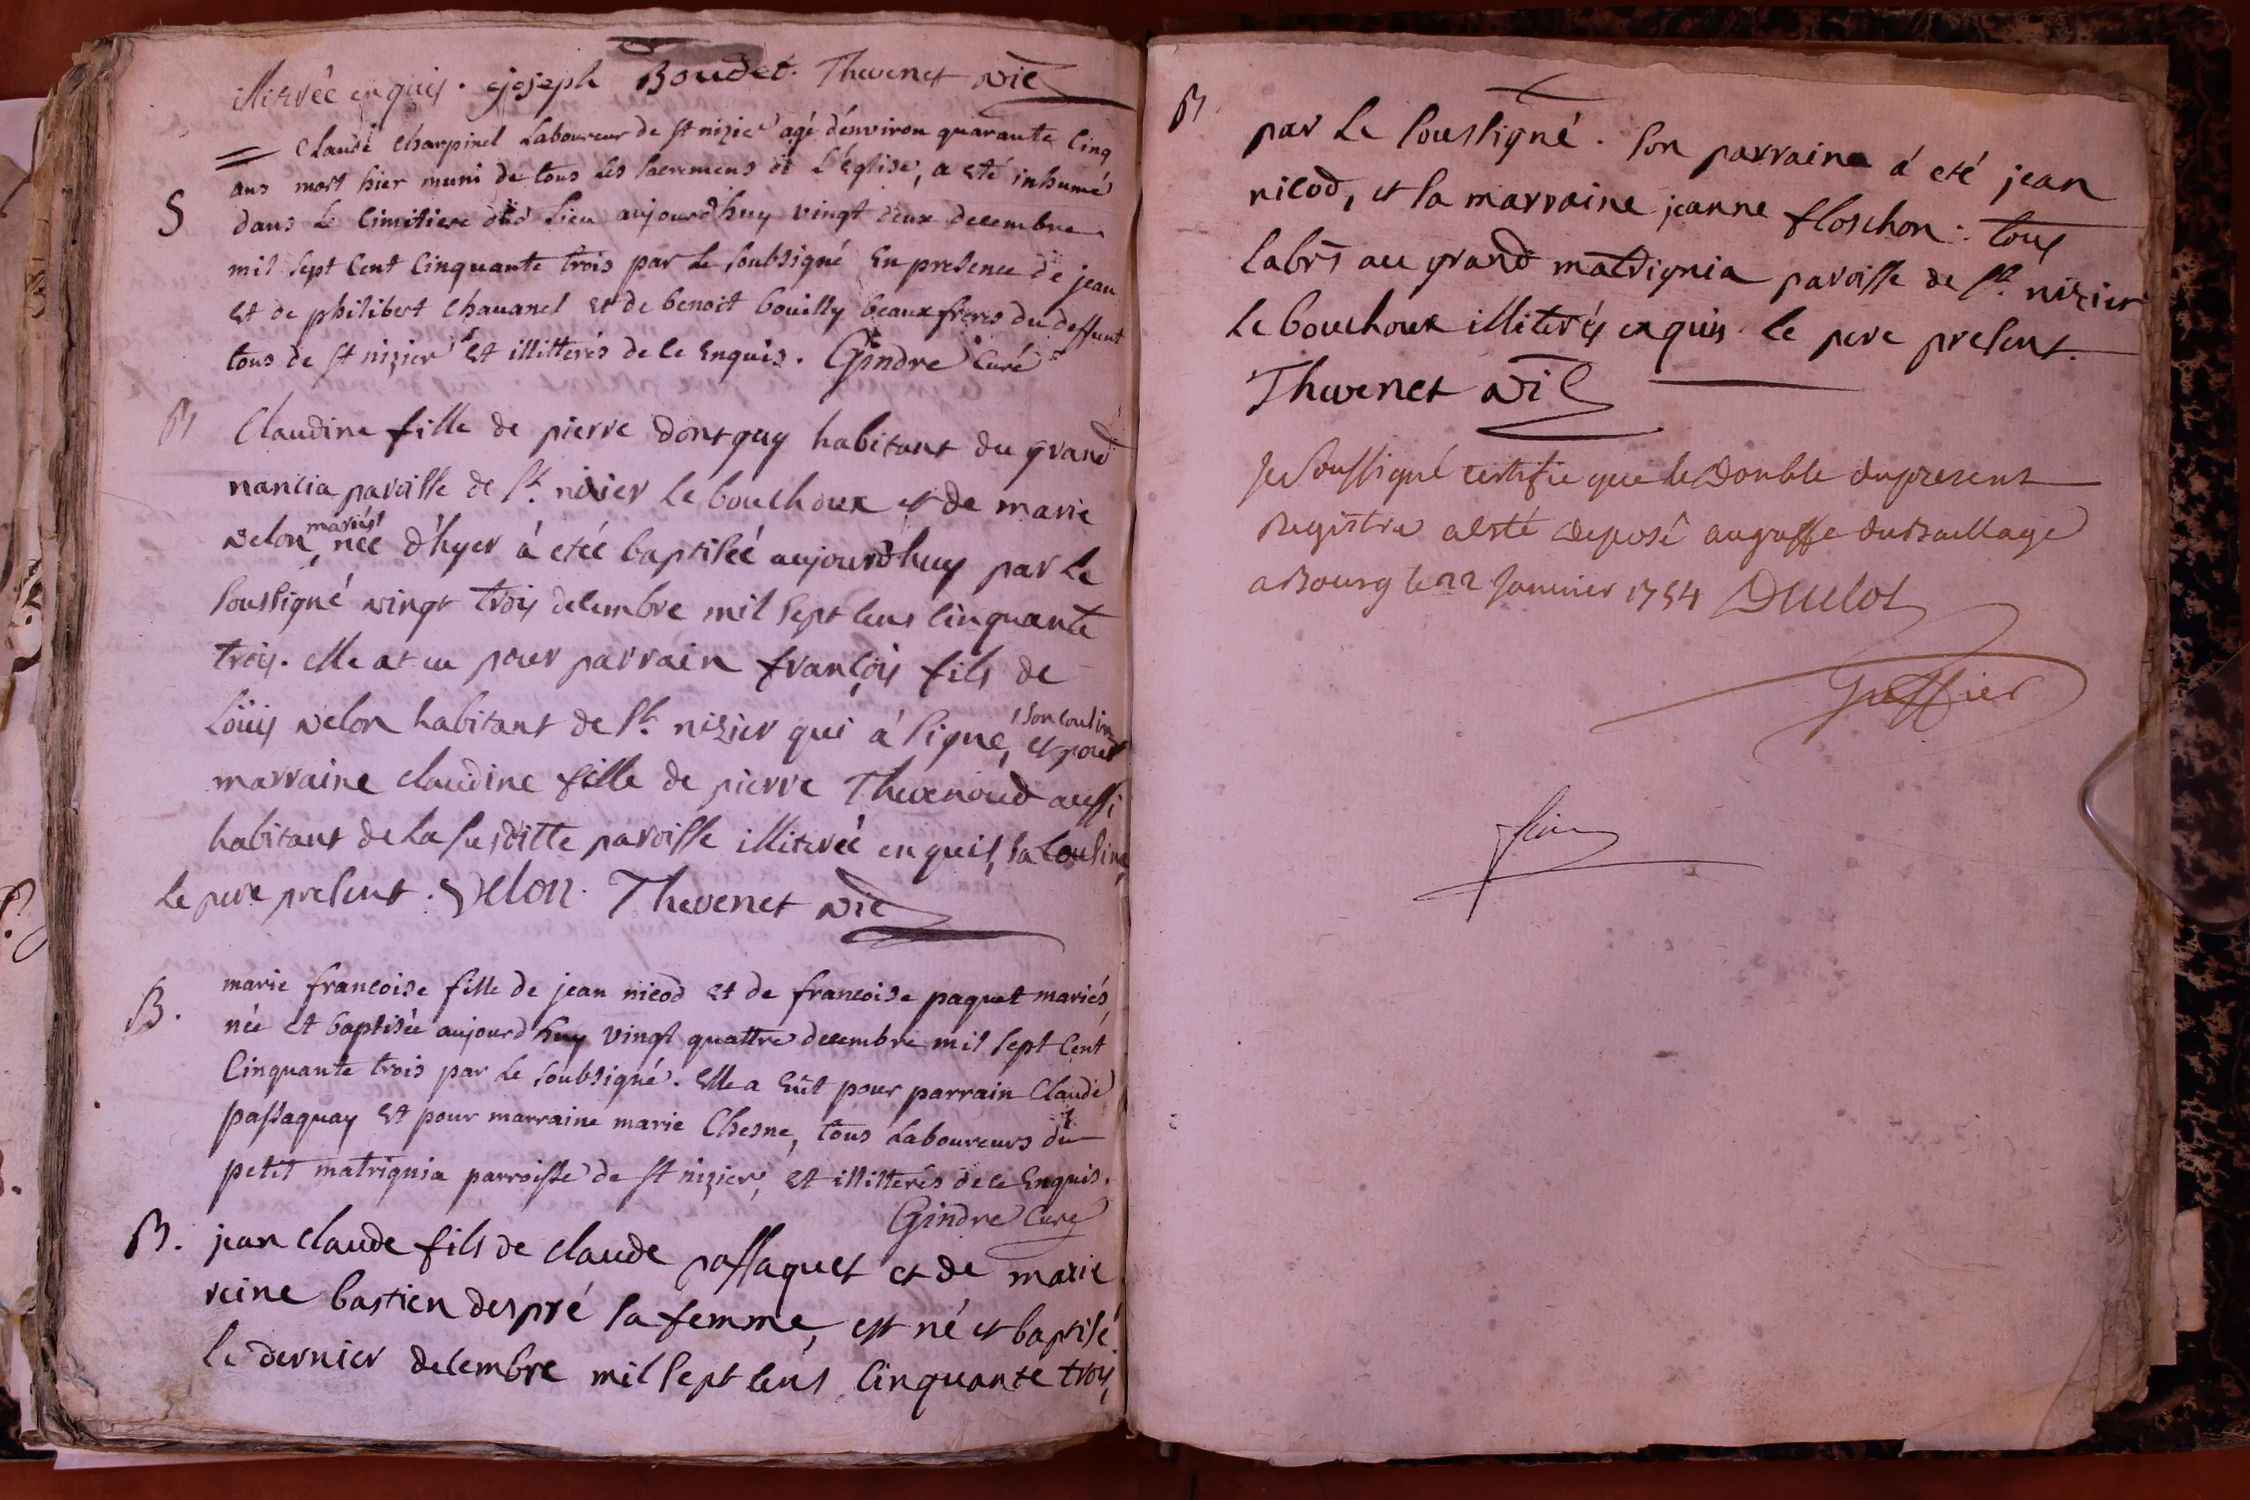 illitérée enquis. Joseph Boudet. Thevenet vic
Claude Charpinel Laboureur de st nizier agé d'environ quarante Cinq
S
ans mort hier muni de tous les sacremens de L'eglise, a eté inhumé
dans le Cimitiere dud Lieu aujourd'huy vingt deux decembre
mil sept Cent Cinquante trois par le soubsigné En presence de jean
Et de philibert Chavanel Et de benoit bouilly beaux freres du deffunt
tous de st nizier Et illitterés de ce Enquis. Gindre Curé
B
Claudine fille de pierre Dontquy habitant du grand
nancia paroisse de st. nizier le bouchoux et de marie
velon, mariés née d'hyer á etéé baptiséé aujourd'huy par le
soussigné vingt trois decembre mil sept cens cinquante
trois. elle at eu pour parrain françois fils de
Loüis velon habitant de st. nizier qui á signé, son cousin et pour
marraine claudine fille de pierre Thevenoud aussi
habitant de la susditte paroisse illiterée enquis, sa cousine,
le pere present. Velon. Thevenet vic
B.
marie francoise fille de jean nicod Et de francoise paquet mariés,
née Et baptisée aujourd huy vingt quattre decembre mil sept Cent
Cinquante trois par le soubsigné. Elle a Eüt pour parrain Claude
passaquay Et pour marraine marie Chesne, tous Laboureurs du
petit matrignia parroisse de st nizier, Et illitterés de ce Enquis.
Gindre Curé
B.
jean claude fils de claude passaquet et de marie
reine bastien despré sa femme, est né et baptisé
le dernier decembre mil sept cens cinquante trois,
B
par le soussigné. son parraine á eté jean
nicod, et sa marraine jeanne floschon. tous
labrs au grand matrignia paroisse de st. nizier
le bouchoux illiterés enquis. le pere present.
Thevenet vic
Je soussigné certifie que le Double du present
Registre a esté deposé au greffe du Baillage
a Bourg le 22 Janvier 1754 Duclot
Greffier
fin